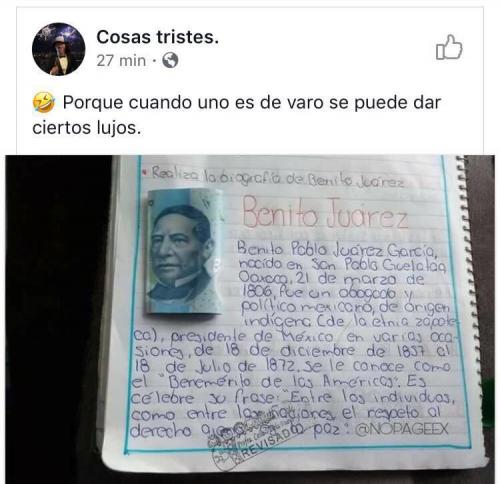 Cosas tristes.
27 min ·
🤣 Porque cuando uno es de varo se puede dar
ciertos lujos.
• Realiza la biografía de Benito Juárez
Benito Juárez
Benito Pablo Juárez García,
nacido en San Pablo Guelatao,
Oaxaca, 21 de marzo de
1806, fue un abogado y
político mexicano, de origen
indígena (de la etnia zapote-
ca), presidente de México en varias oca-
siones, de 18 de diciembre de 1857 al
18 de Julio de 1872. Se le conoce como
el "Benemérito de las Américas". Es
célebre su frase: "Entre los individuos,
como entre las naciones el respeto al
derecho ajeno es la paz". @NOPAGEEX
REVISADO